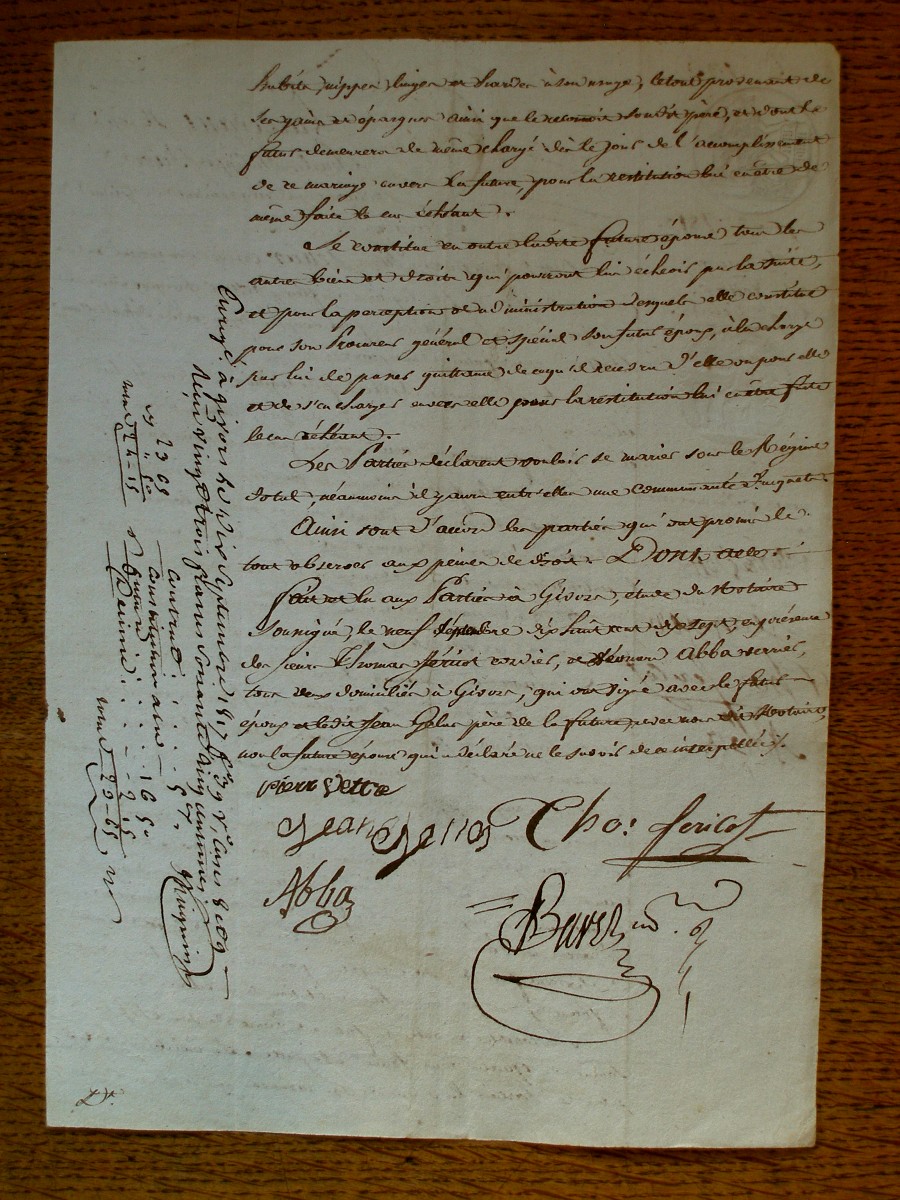 habits, nippes, linges et hardes à son usage, le tout provenant de
ses gains et épargnes ainsi que le reconnoit son dit père, et dont le
futur demeurera de même chargé dès le jour de l'accomplissement
de ce mariage envers la future, pour la restitution lui en être de
même faite le cas échéant.
Se constitue en outre ladite future épouse tous les
autres biens et droits qui pourront lui échoir par la suite,
et pour la perception et administration desquels elle constitue
pour son Procureur général et spécial son futur époux, à la charge
par lui de passer quittance de ce qu'il recevra d'elle ou pour elle
et de s'en charger envers elle pour la restitution lui en être faite
le cas échéant.
Les Parties déclarent vouloir se marier sous le Régime
dotal, néanmoins il y aura entr'elles une communauté d'acquets.
Ainsi sont d'accord les parties qui ont promis le
tout observer aux peines de droit. Dont acte.
Fait et lu aux Parties à Givors, étude du Notaire
soussigné, le neuf septembre dix huit cent dix sept, en présence
des sieurs Thomas fericot verrier, et Abba verrier,
tous deux domiciliés à Givors, qui ont signé avec le futur
époux et ledit Jean père de la future, avec nous dit Notaire,
non la future épouse qui a déclaré ne le savoir de ce interpellée.
pierr vette
Jean
Cho. fericot
Abba
Enregé à givors le dix Septembre 1817 f°
Reçu vingt trois francs soixante cinq centimes
contrat . . . . 5 "
constitution 16 50
Dixième . . 2 15
23 65
29-65